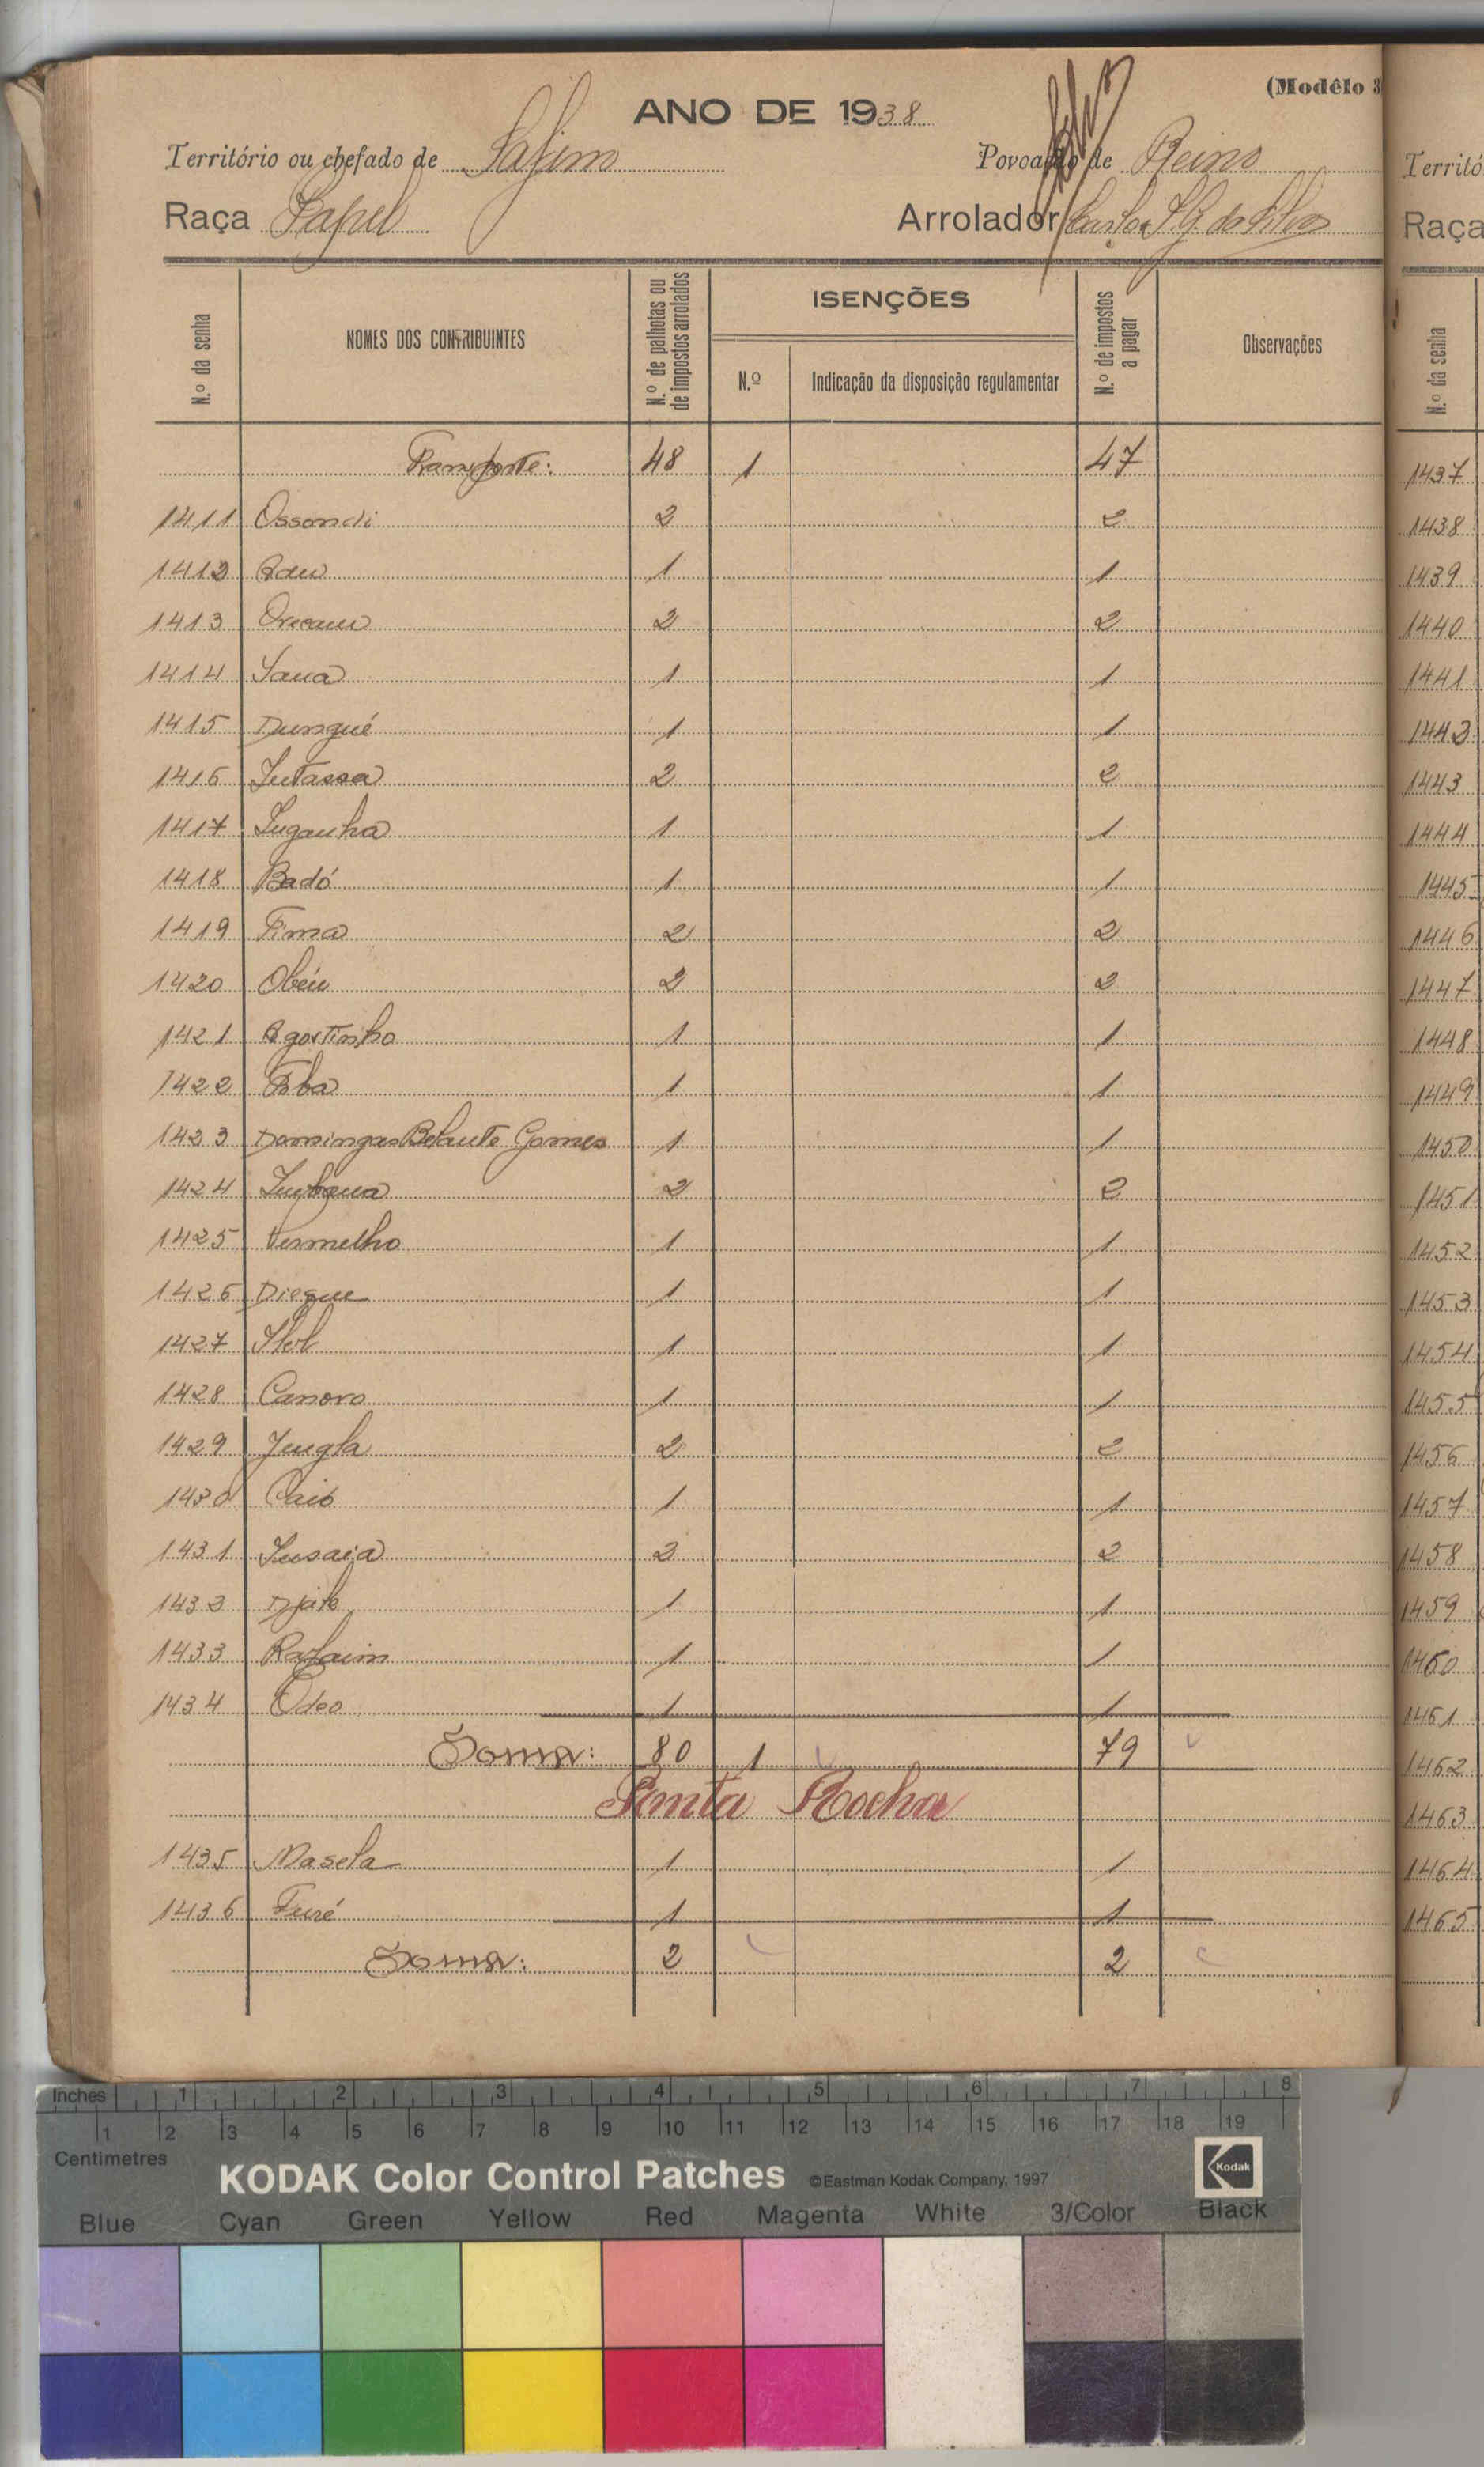 (Modêlo 3
ANO DE 1938
Território ou chefado de Safim Povoação de Reino
Raça Papel Arrolador Carlos da Silva
N.º da senha NOMES DOS CONTRIBUINTES N.º de palhotas ou de impostos arrolados ISENÇÕES N.º Indicação da disposição regulamentar N.º de impostos a pagar Observações
Transporte: 48 1 47
1411 Ossondi 2 2
1412 1 1
1413 2 2
1414 1 1
1415 Dungué 1 1
1416 2 2
1417 1 1
1418 Badó 1 1
1419 2 2
1420 2 2
1421 Agostinho 1 1
1422 1 1
1423 Domingas Gomes 1 1
1424 2 2
1425 Vermelho 1 1
1426 Diegue 1 1
1427 1 1
1428 Canovo 1 1
1429 2 2
1430 Caió 1 1
1431 2 2
1432 1 1
1433 1 1
1434 Odeo 1 1
Soma: 80 1 79
Ponta Rocha
1435 1 1
1436 1 1
Soma: 2 2
Territó
Raça
N.º da senha
1437
1438
1439
1440
1441
1442
1443
1444
1445
1446
1447
1448
1449
1450
1451
1452
1453
1454
1455
1456
1457
1458
1459
1460
1461
1462
1463
1464
1465
Inches 1 2 3 4 5 6 7 8
1 2 3 4 5 6 7 8 9 10 11 12 13 14 15 16 17 18 19
Centimetres
KODAK Color Control Patches ©Eastman Kodak Company, 1997 Kodak
Blue Cyan Green Yellow Red Magenta White 3/Color Black